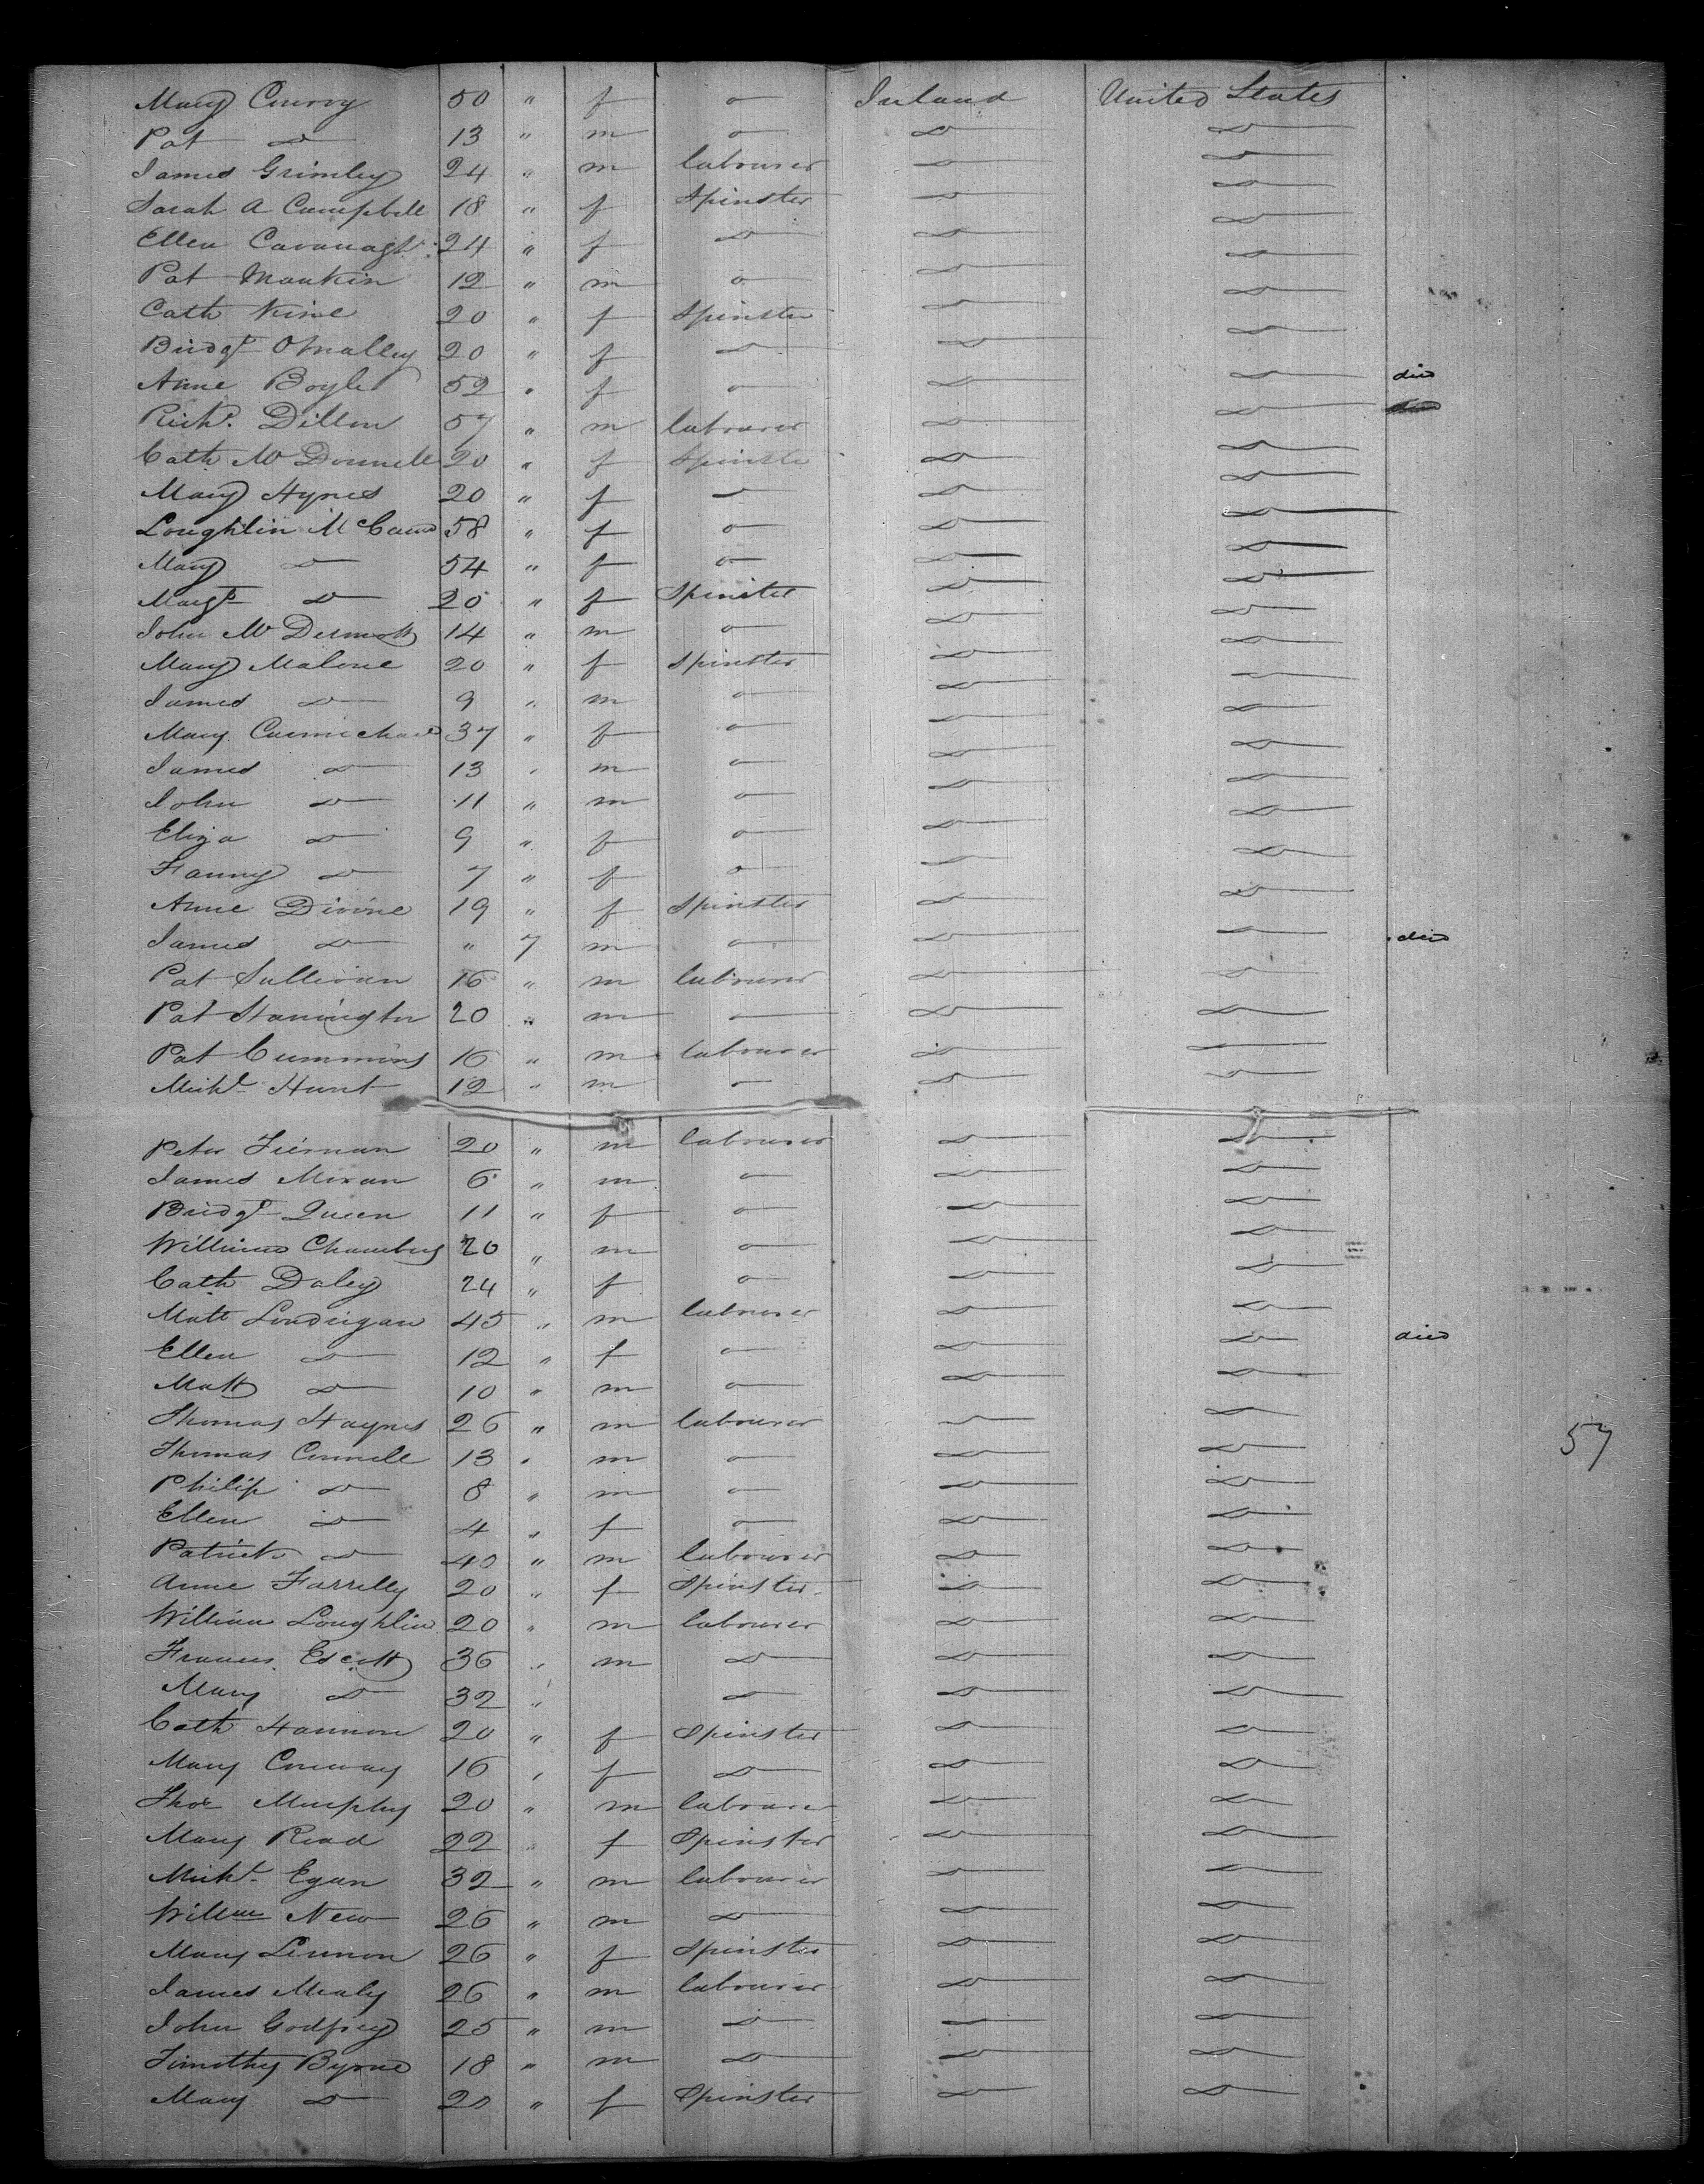 Mary Conroy 50 " f o Ireland United States
Pat do 13 " m o do do
James Grimley 24 " m labourer do do
Sarah A Campbell 18 " f Spinster do do
Ellen Cavanagh 24 " f do do do
Pat Mankin 12 " m o do do
Cath Kine 20 " f Spinster do do
Bridgt OMalley 20 " f do do do
Anne Boyle 52 " f o do do died
Richd. Dillon 57 " m labourer do do
Cath McDonnell 20 " f Spinster do do
Mary Hynes 20 " f do do do
Loughlin McCann 58 " f o do do
Mary do 54 " f o do do
Margt do 20 " f Spinster do do
John McDermott 14 " m o do do
Mary Malone 20 " f Spinster do do
James do 9 " m o do do
Mary Carmichael 37 " f o do do
James do 13 " m o do do
John do 11 " m o do do
Eliza do 9 " f o do do
Fanny do 7 " f o do do
Anne Divine 19 " f Spinster do do
James do " 7 m o do do died
Pat Sullivan 16 " m labourer do do
Pat Hanington 20 " m do do
Pat Cummins 16 " m labourer do do
Michl Hunt 12 " m o do do
Peter Tiernan 20 " m labourer do do
James Moran 6 " m o do do
Bridgt Queen 11 " f o do do
William Chambers 20 " m o do do
Cath Daley 24 " f o do do
Matt Londrigan 45 " m labourer do do
Ellen do 12 " f o do do died
Matt do 10 " m o do do
Thomas Haynes 26 " m labourer do do
Thomas Connell 13 " m o do do 57
Philip do 8 " m o do do
Ellen do 4 " f o do do
Patrick do 40 " m labourer do do
Anne Farrelly 20 " f Spinster do do
William Loughlin 20 " m labourer do do
Frances Escott 36 " m do do do
Mary do 32 " do do do
Cath Hannon 20 " f Spinster do do
Mary Conway 16 " f do do do
Thos Murphy 20 " m labourer do do
Mary Read 22 " f Spinster do do
Michl Egan 32 " m labourer do do
Willm New 26 " m do do do
Mary Lennon 26 " f Spinster do do
James Mealy 26 " m labourer do do
John Godfrey 25 " m do do do
Timothy Byrne 18 " m do do do
Mary do 20 " f Spinster do do